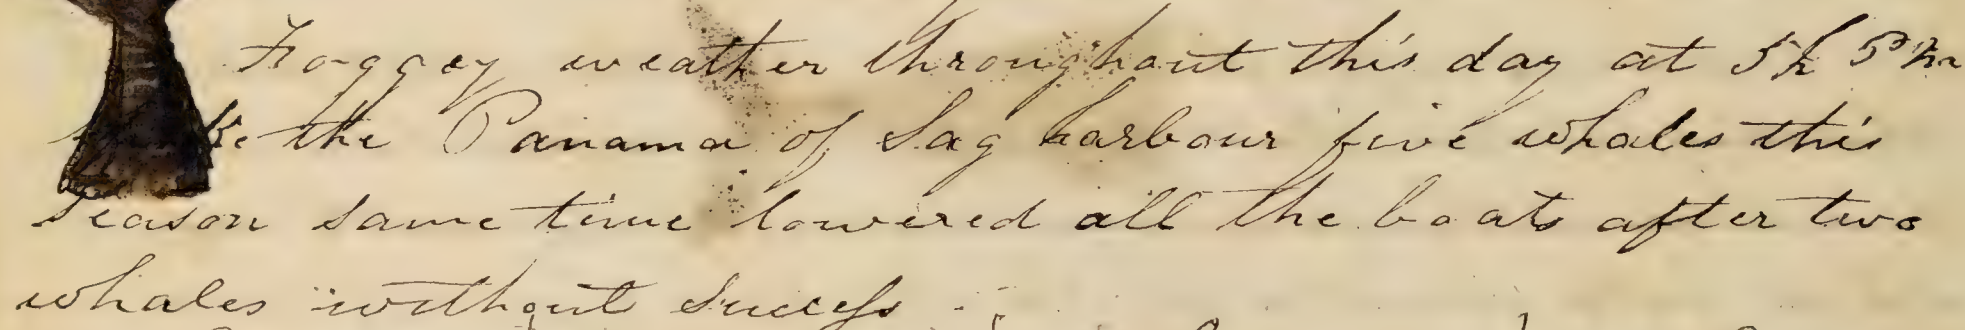 Foggey weather throughout this day at 5h Pm
the Panama of Sag harbour five whales this
Season same time lowered all the boats after two
whales without Success